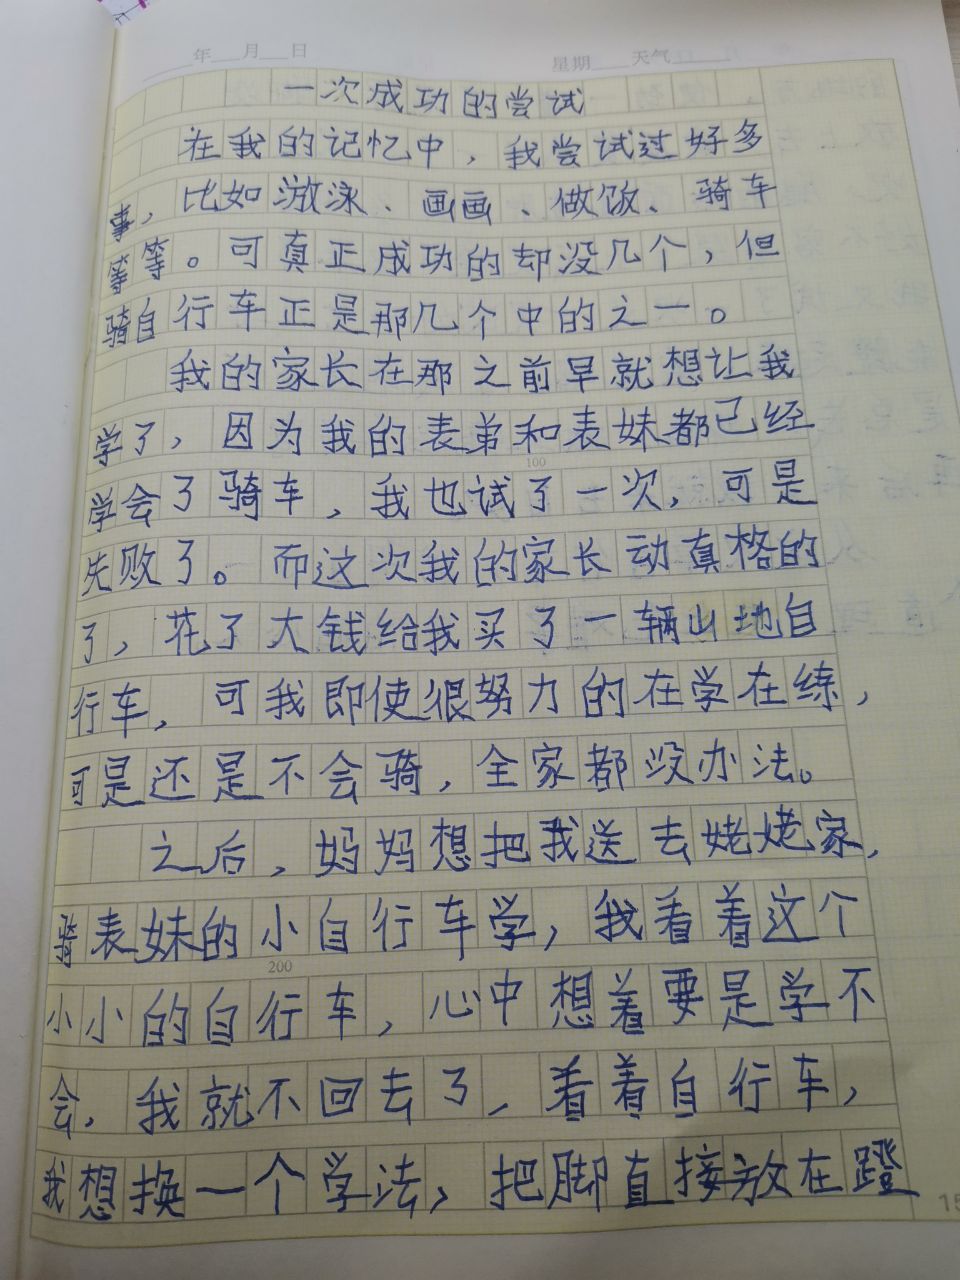 年 月 日 星期 天气
一次成功的尝试
在我的记忆中，我尝试过好多
事，比如游泳、画画、做饭、骑车
等等。可真正成功的却没几个，但
骑自行车正是那几个中的之一。
我的家长在那之前早就想让我
学了，因为我的表弟和表妹都已经
100
学会了骑车，我也试了一次，可是
失败了。而这次我的家长动真格的
了，花了大钱给我买了一辆山地自
行车，可我即使很努力的在学在练，
可是还是不会骑，全家都没办法。
之后，妈妈想把我送去姥姥家，
骑表妹的小自行车学，我看着这个
200
小小的自行车，心中想着要是学不
会，我就不回去了，看着自行车，
我想换一个学法，把脚直接放在蹬